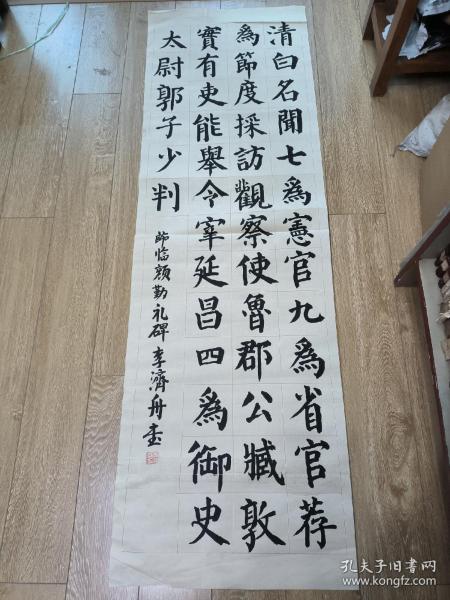 清白名聞七為憲官九為省官荐
為節度採訪觀察使魯郡公臧敦
實有吏能舉令宰延昌四為御史
太尉郭子少判
節临顏勤礼碑 李濟舟書
孔夫子旧书网
www.kongfz.com